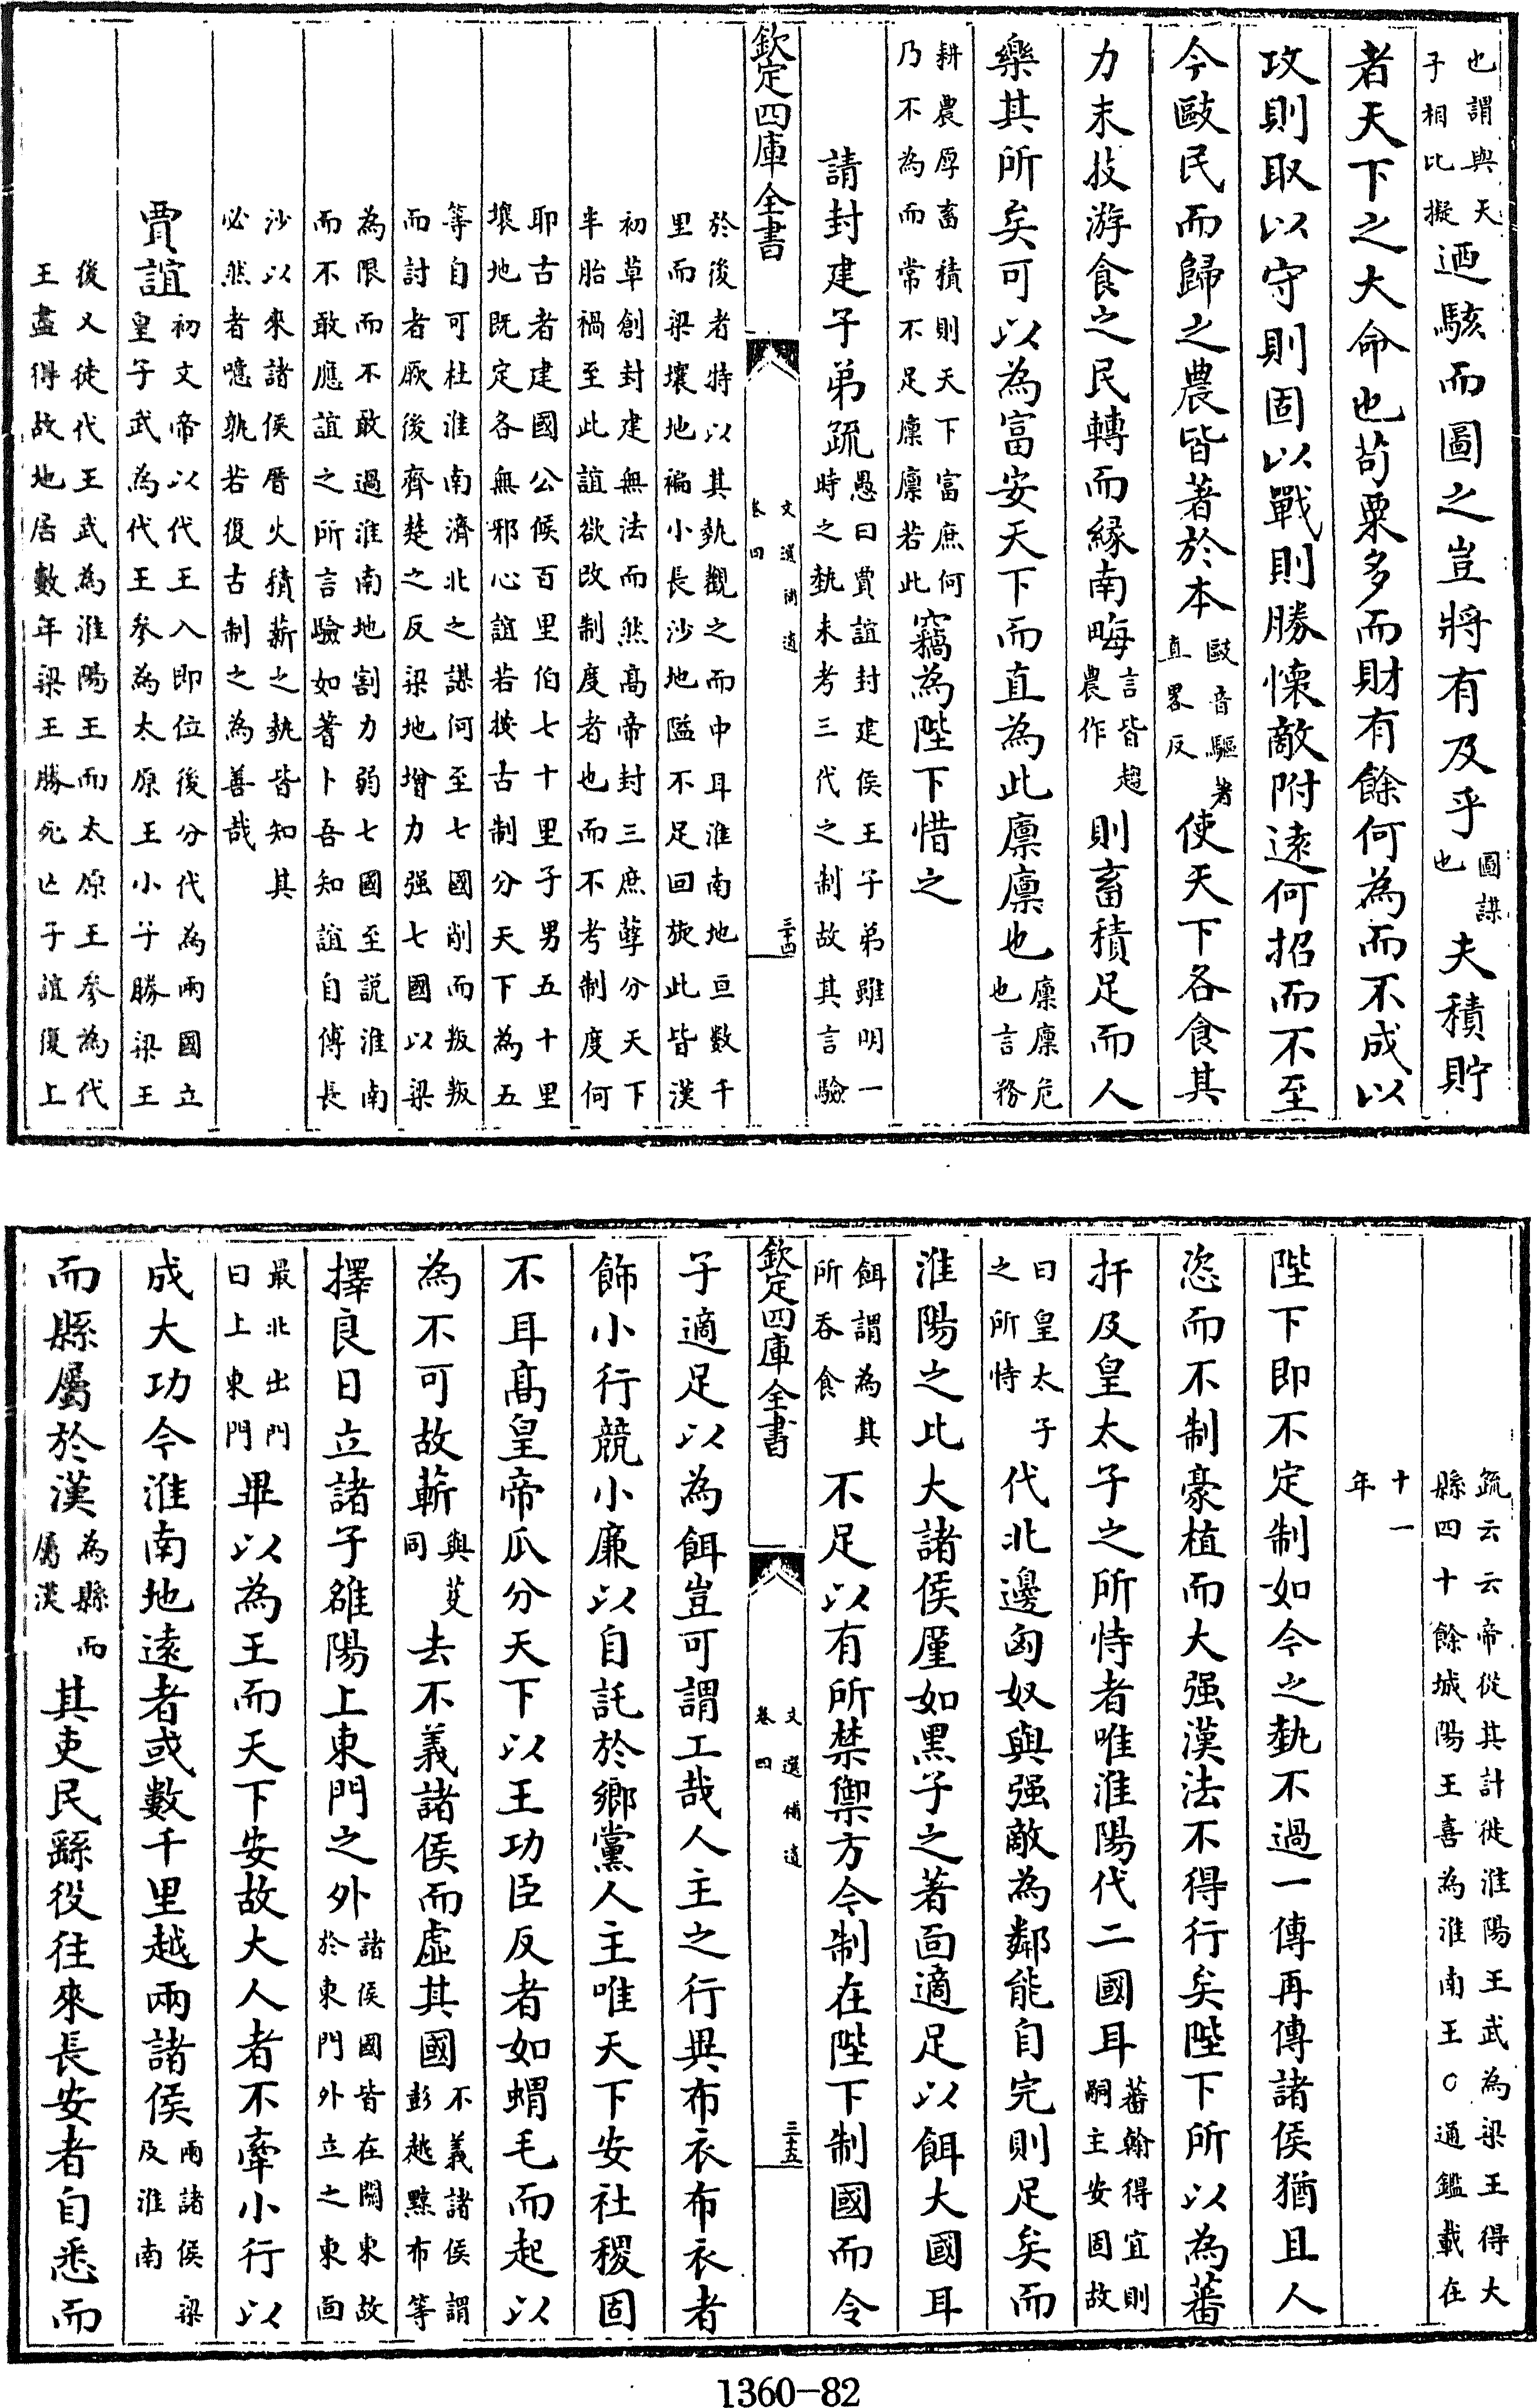 也謂與天子相比擬迺駭而圖之豈將有及乎圖謀也夫積貯
者天下之大命也苟粟多而財有餘何為而不成以
攻則取以守則固以戰則勝懷敵附逺何招而不至
今敺民而歸之農皆著於本敺音驅著直畧反使天下各食其
力末技游食之民轉而緣南畮言皆趨農作則畜積足而人
樂其所矣可以為富安天下而直為此廩廩也廩廩危也言務
耕農厚畜積則天下富庶何乃不為而常不足廩廩若此竊為陛下惜之
請封建子弟疏愚曰賈誼封建侯王子弟雖明一時之埶未考三代之制故其言驗
欽定四庫全書 文選補遺 卷四 三十四
於後者特以其埶觀之而中耳淮南地亘數千里而梁壤地褊小長沙地隘不足回旋此皆漢
初草創封建無法而然髙帝封三庶孽分天下半胎禍至此誼欲改制度者也而不考制度何
耶古者建國公候百里伯七十里子男五十里壤地既定各無邪心誼若按古制分天下為五
等自可杜淮南濟北之謀何至七國削而叛叛而討者厥後齊楚之反梁地增力强七國以梁
為限而不敢過淮南地割力弱七國至說淮南而不敢應誼之所言驗如蓍卜吾知誼自傅長
沙以來諸侯厝火積薪之埶皆知其必然者噫孰若復古制之為善哉
賈誼初文帝以代王入即位後分代為兩國立皇子武為代王參為太原王小子勝梁王
後又徙代王武為淮陽王而太原王參為代王盡得故地居數年梁王勝死亡子誼復上
疏云云帝從其計徙淮陽王武為梁王得大縣四十餘城陽王喜為淮南王○通鑑載在
十一年
陛下即不定制如今之埶不過一傳再傳諸侯猶且人
恣而不制豪植而大强漢法不得行矣陛下所以為蕃
扞及皇太子之所恃者唯淮陽代二國耳蕃翰得宜則嗣主安固故
曰皇太子之所恃代北邊匈奴與强敵為鄰能自完則足矣而
淮陽之比大諸侯厪如黒子之著面適足以餌大國耳
餌謂為其所吞食不足以有所禁禦方今制在陛下制國而令
欽定四庫全書 文選補遺 卷四 三十五
子適足以為餌豈可謂工哉人主之行異布衣布衣者
飾小行競小廉以自託於鄉黨人主唯天下安社稷固
不耳髙皇帝瓜分天下以王功臣反者如蝟毛而起以
為不可故蔪與芟同去不義諸侯而虛其國不義諸侯謂彭越黥布等
擇良日立諸子雒陽上東門之外諸侯國皆在關東故於東門外立之東面
最北出門曰上東門畢以為王而天下安故大人者不牽小行以
成大功今淮南地逺者或數千里越兩諸侯兩諸侯梁及淮南
而縣屬於漢為縣而屬漢其吏民繇役往來長安者自悉而
1360-82